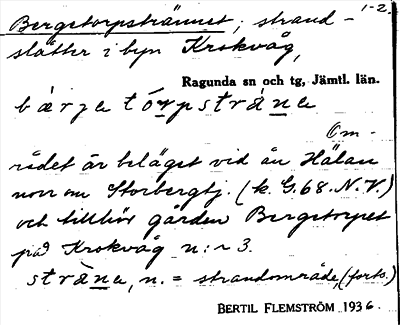 1-2.
Bergstorpsträmnet; strand-
slåtter i byn Krokvåg,
Ragunda sn och tg, Jämtl. län.
bärje tórpsträ̀ne
Om-
rådet är beläget vid ån Hälan
norr om Storbergtj. (k. G.68.N.V.)
och tillhör gården Bergstorpet
på Krokvåg n:r 3.
strä̀ne, n. = strandområde, (forts.)
BERTIL FLEMSTRÖM 1936.